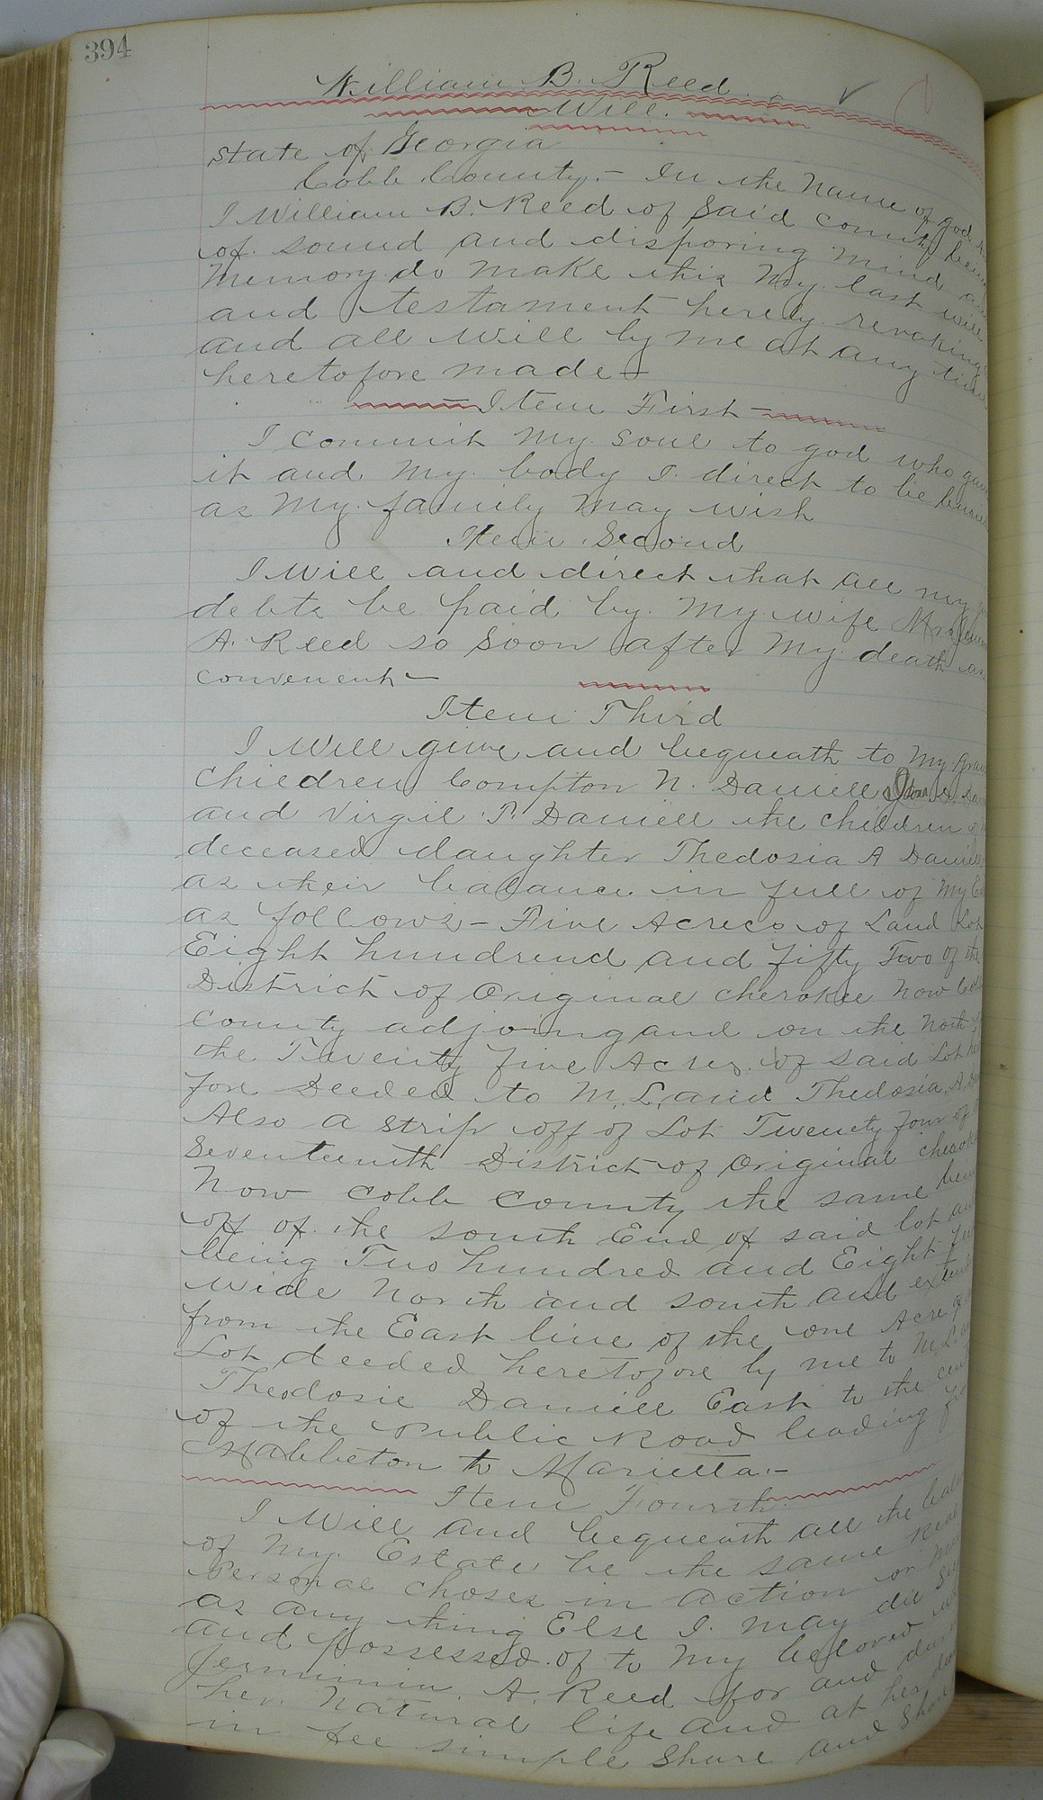 394
William B. Reed
Will.
State of Georgia
Cobb County.- In the Name of god
I William B. Reed of Said County being
of sound and disposing mind
Memory do make this My last will
and testament hereby revoking
and all will by me at any time
heretofore made-
- Item First -
I commit My soul to god who gave
it and My body I direct to be buried
as My family May wish
Item Second
I Will and direct that all my
debts be paid by My wife
A. Reed so Soon after My death as
convenent-
Item Third
I Will give and bequeath to My
Children Compton N. Daniell
and Virgil P. Daniell the children
deceased daughter Thedosia A Daniell
as their balance in full of My
as follows- Five Acrecs of Land Lot
Eight hundrend and fifty Two of the
District of Original Cherokee Now
County adjoing and on the North
the Twenty five Acres of said Lot
fore Deeded to M. L. and Thedosia A.
Also a strip off of Lot Twenty four of
Seventeenth District of Original
Now Cobb County the same
off of the south End of said lot
being Two hundred and Eight
wide North and south and
from the East line of the one Acre
Lot deeded heretofore by me to M. L.
Theodosie Daniell East to the
of the public Road leading
Mableton to Marietta.-
Item Fourth.
I Will and bequeath all the
of My Estate be the same Real
Personal choses in action or
as any thing Else I may die
and possessed of to My beloved
Jemimia A. Reed for and
her Natural life and at her
in fee simple Share and Share